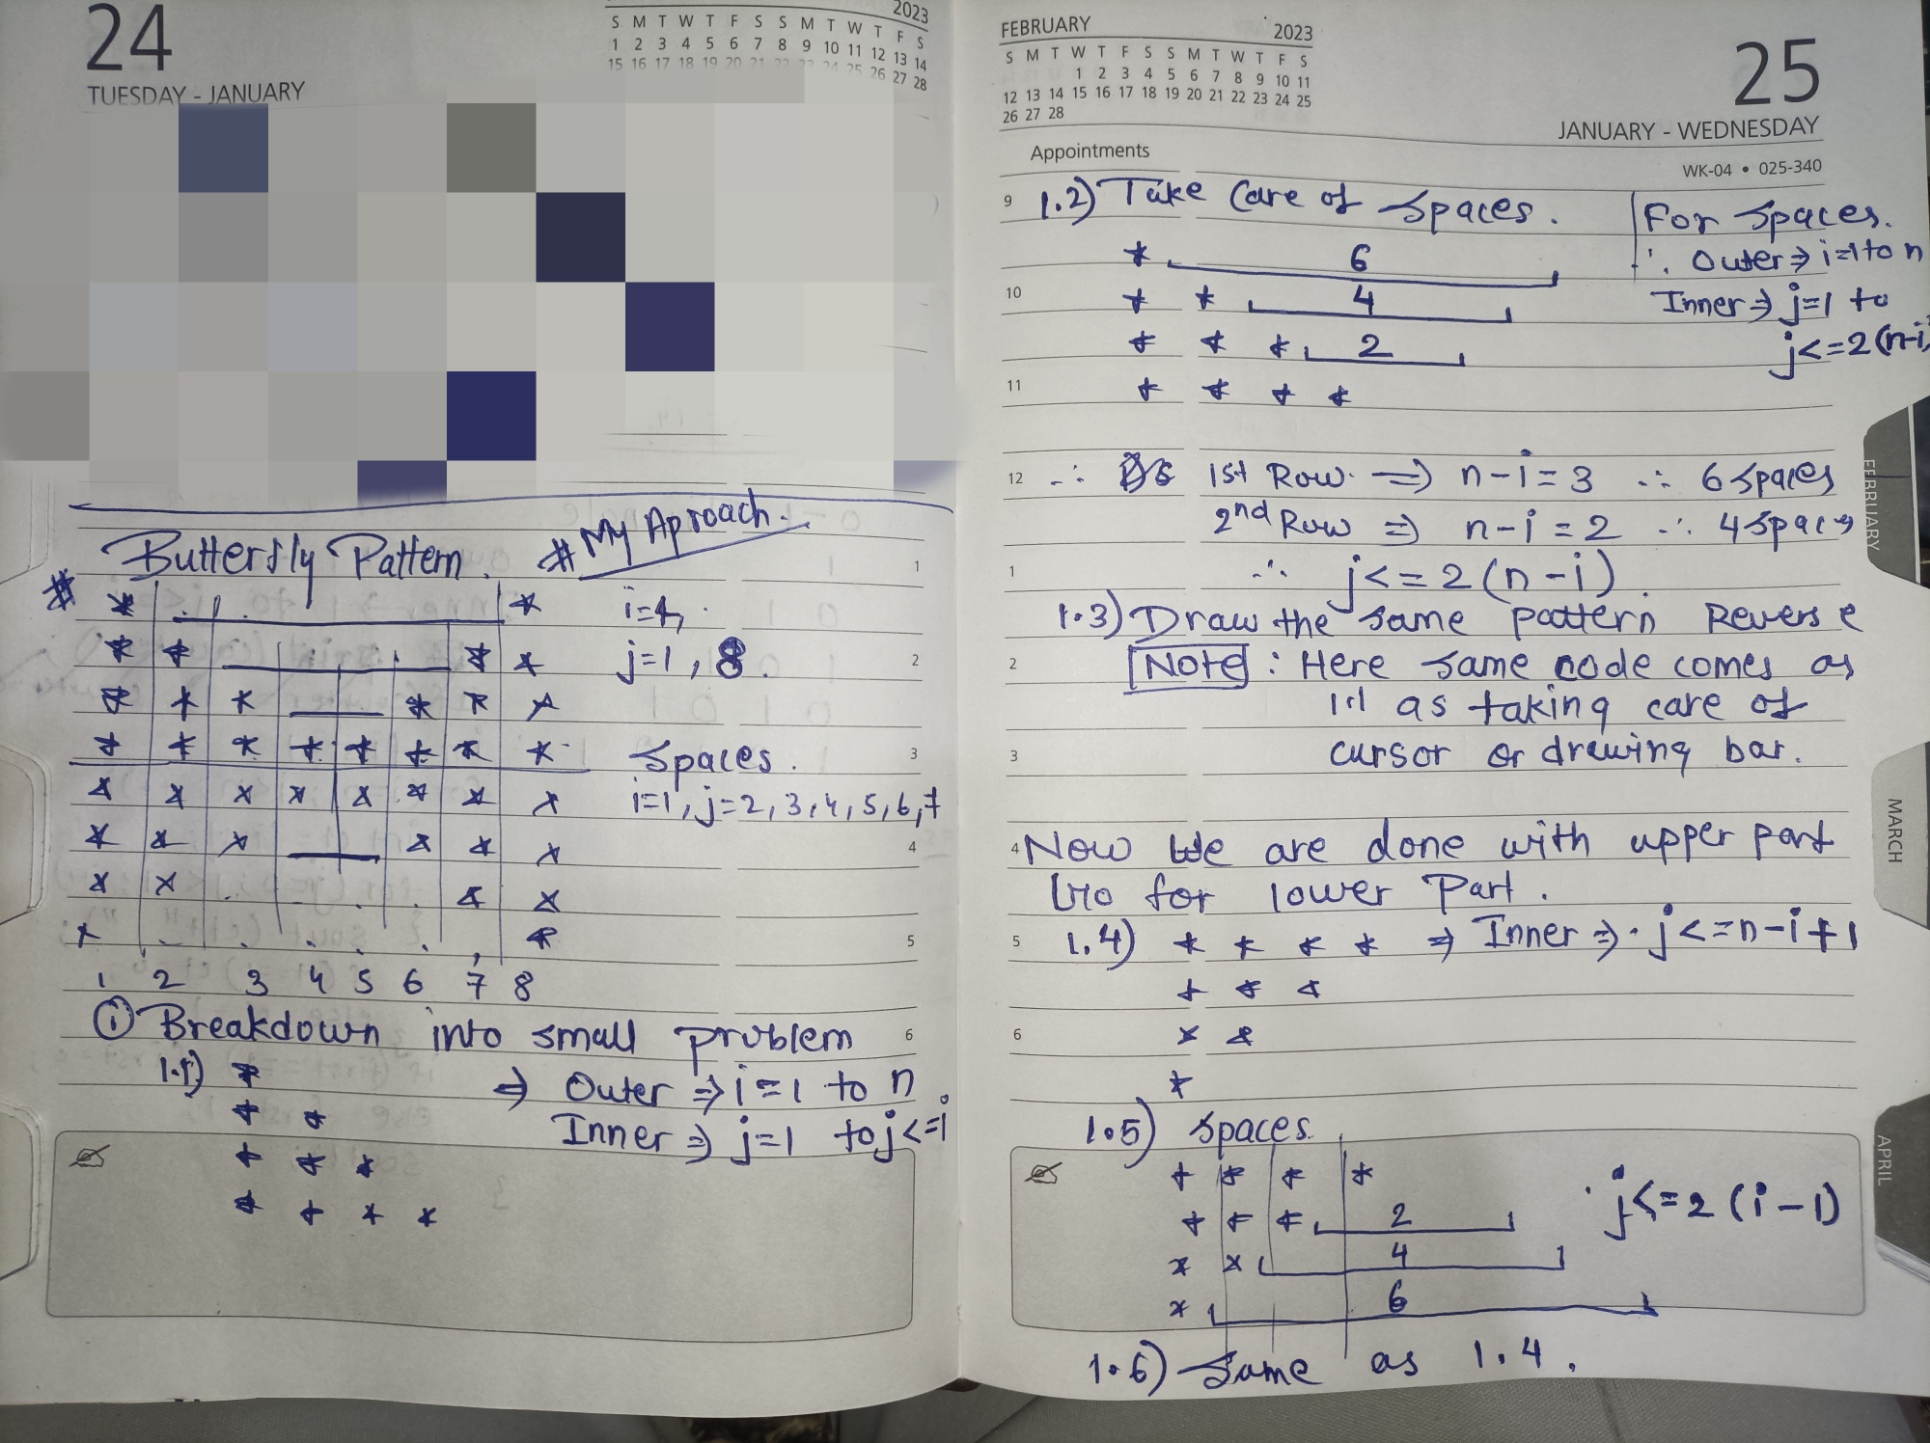 24
TUESDAY - JANUARY
2023
S M T W T F S S M T W T F S
1 2 3 4 5 6 7 8 9 10 11 12 13 14
15 16 17 18 19 20 21 22 24 25 26 27 28
Butterfly Pattern. # My Aproach.
# * * i=4,
* * * * j=1, 8.
* * * * * *
* * * * * * * * Spaces.
* * * * * * * * i=1, j=2,3,4,5,6,7
* * * * * *
* * * *
* *
1 2 3 4 5 6 7 8
① Breakdown into small problem
1.1) * ⇒ Outer ⇒ i=1 to n
* * Inner ⇒ j=1 to j<=i
* * *
* * * *
1
2
3
4
5
6
FEBRUARY 2023
S M T W T F S S M T W T F S
1 2 3 4 5 6 7 8 9 10 11
12 13 14 15 16 17 18 19 20 21 22 23 24 25
26 27 28
25
JANUARY - WEDNESDAY
WK-04 • 025-340
Appointments
9 1.2) Take Care of Spaces. For Spaces.
* 6 ∴ Outer ⇒ i=1 to n
10 * * 4 Inner ⇒ j=1 to
* * * 2 j<=2(n-i)
11 * * * *
12 ∴ 1st Row ⇒ n-i=3 ∴ 6 Spaces
2nd Row ⇒ n-i=2 ∴ 4 Spaces
1 ∴ j<=2(n-i).
1.3) Draw the same pattern Reverse
2 Note : Here same code comes as
as taking care of
3 cursor or drawing bar.
4 Now We are done with upper part
Go for lower Part.
5 1.4) * * * * ⇒ Inner ⇒ j<=n-i+1
* * *
6 * *
*
1.5) Spaces
* * * * j<=2(i-1)
* * * 2
* * 4
* 6
1.6) Same as 1.4.
FEBRUARY
MARCH
APRIL